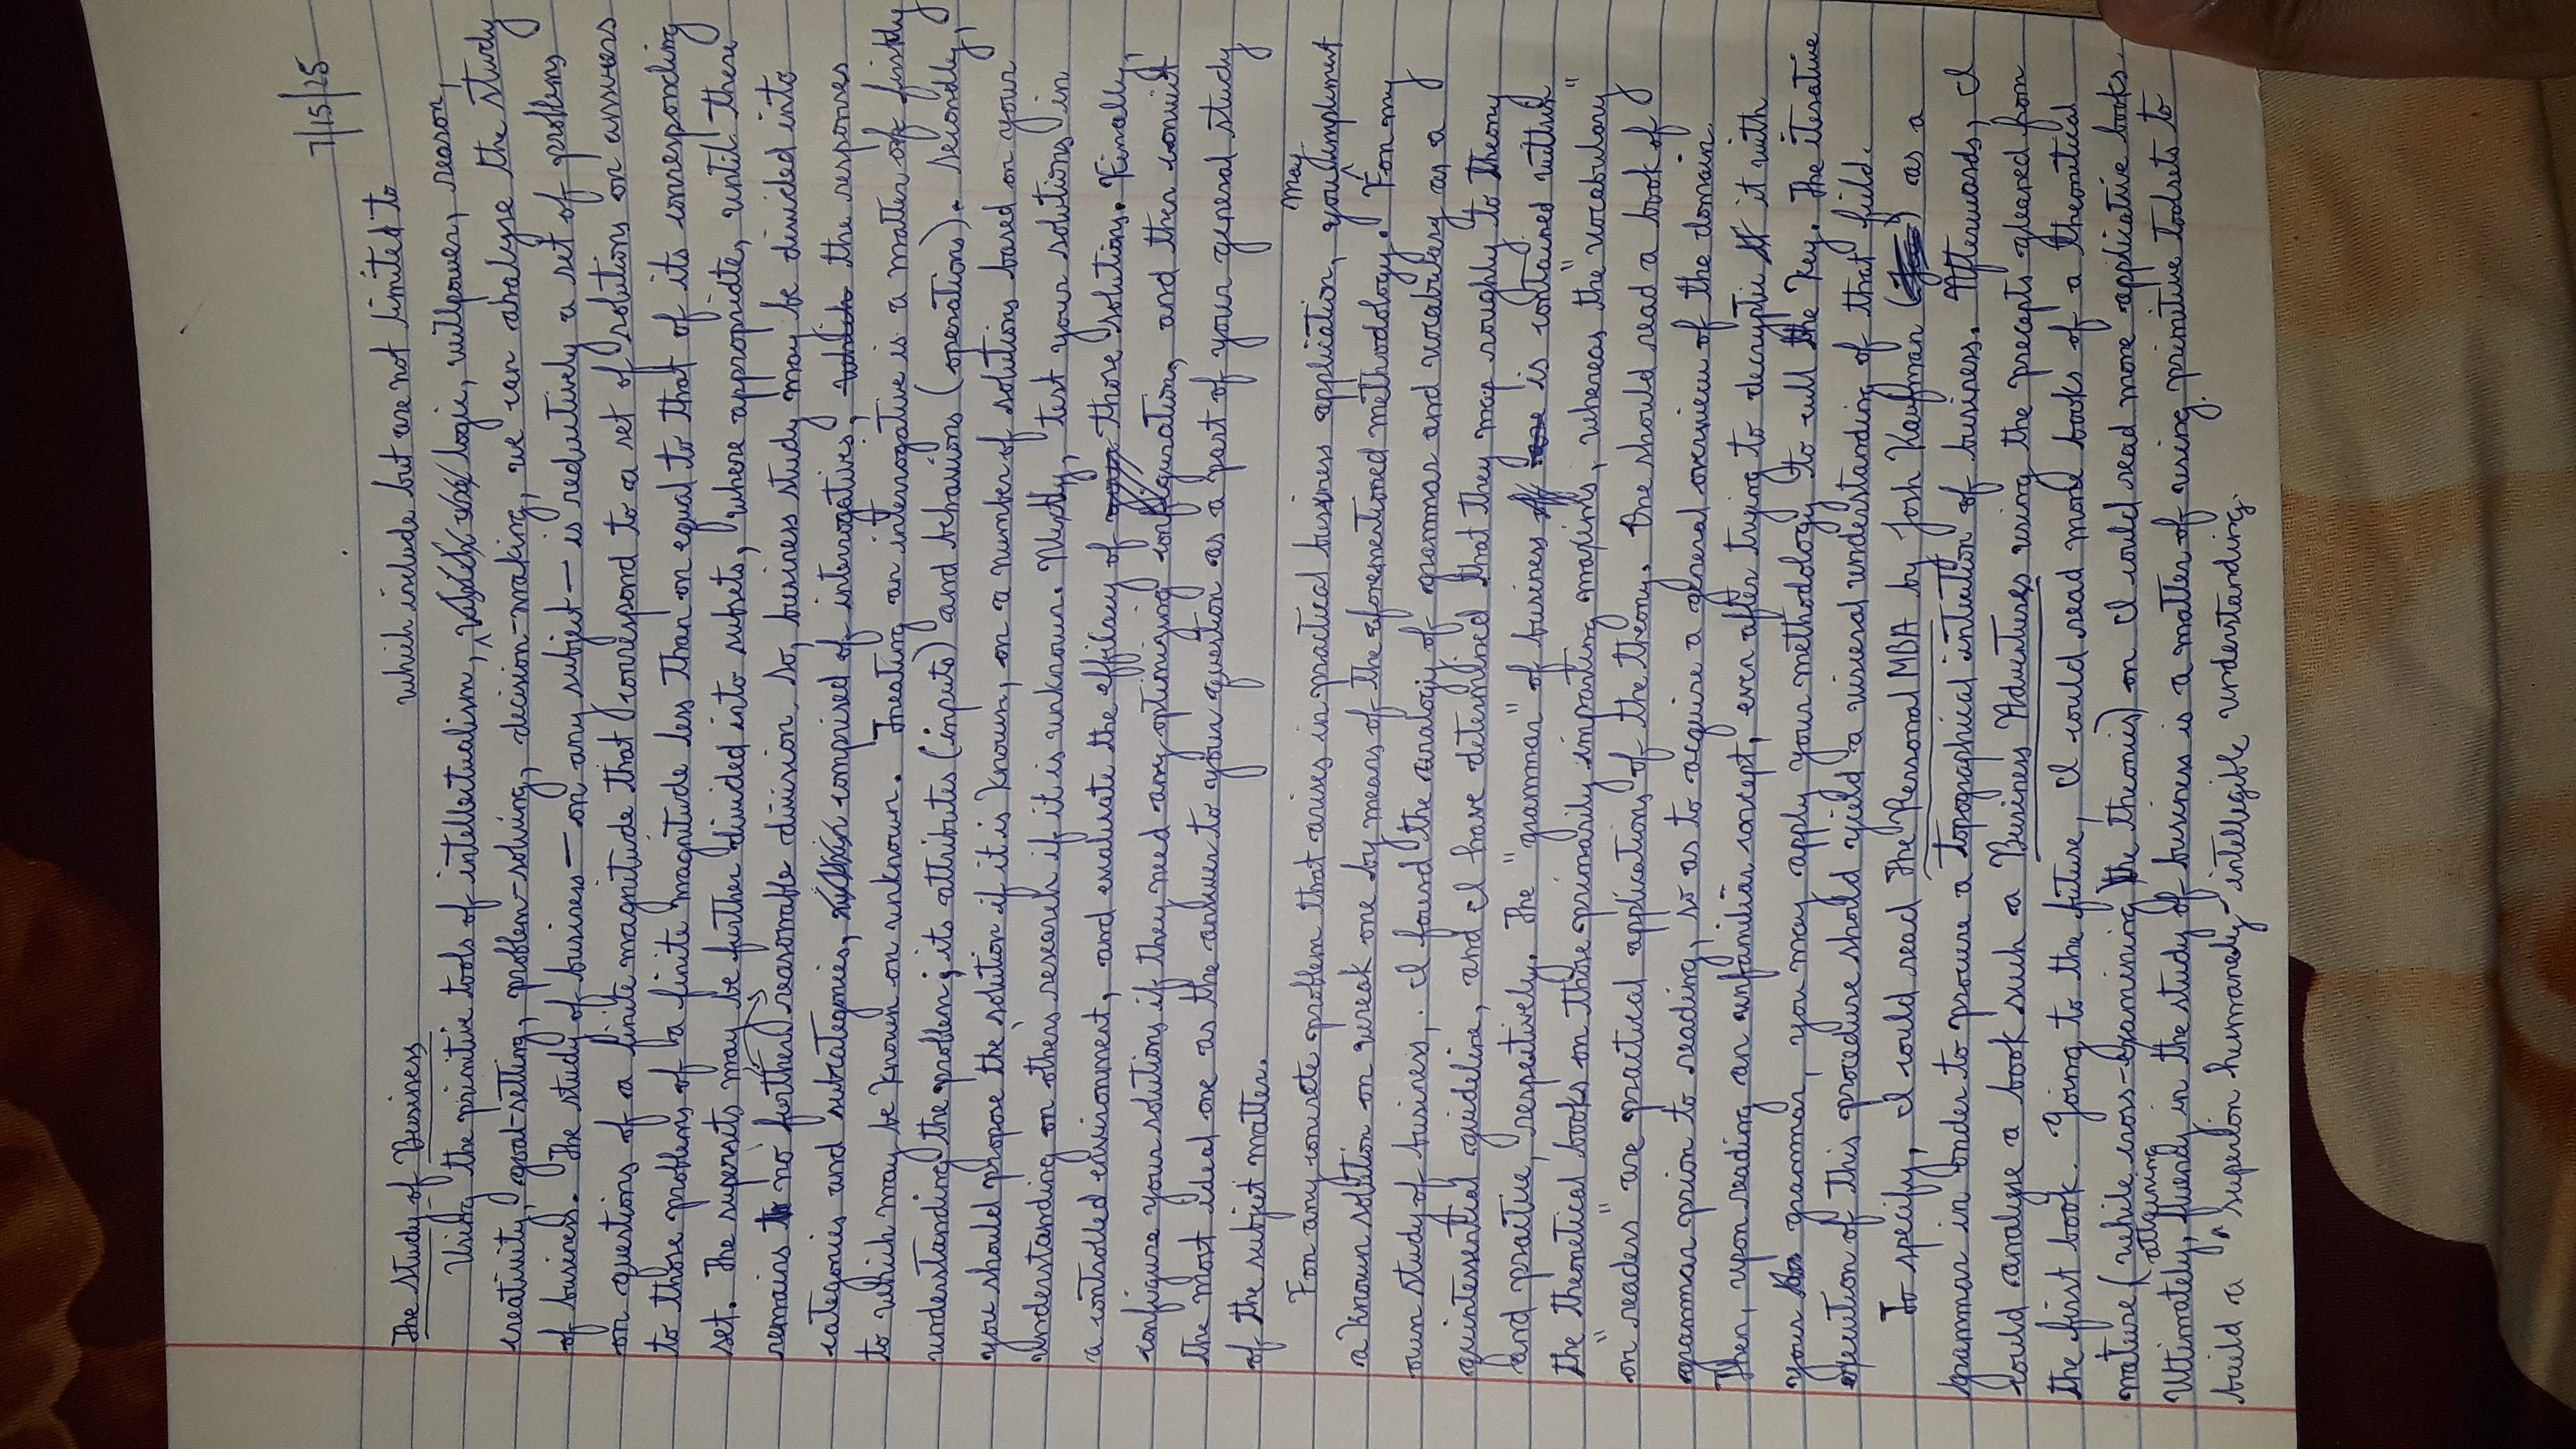 7/15/25
The Study of Business
which include but are not limited to
Using the primitive tools of intellectualism, logic, willpower, reason,
creativity, goal-setting, problem-solving, decision-making, we can analyse the study
of business. The study of business — or any subject — is reductively a set of problems
or questions of a finite magnitude that correspond to a set of solutions or answers
to those problems of a finite magnitude less than or equal to that of its corresponding
set. The supersets may be further divided into subsets, where appropriate, until there
remains no further reasonable division. So, business study may be divided into
categories and subcategories, comprised of interrogatives, the responses
to which may be known or unknown. Treating an interrogative is a matter of firstly
understanding the problem; its attributes (inputs) and behaviors (operations). Secondly,
you should propose the solution if it is known, or a number of solutions based on your
understanding or others' research if it is unknown. Nextly, test your solutions in
a controlled environment, and evaluate the efficacy of those solutions. Finally,
configure your solutions if they need any optimizing configuration, and then commit
the most ideal one as the answer to your question as a part of your general study
of the subject matter.
For any concrete problem that arises in practical business application, you may implement
a known solution or wreak one by means of the aforementioned methodology. For my
own study of business, I found the analogy of grammar and vocabulary as a
quintessential guideline, and I have determined that they map roughly to theory
and practice, respectively. The "grammar" of business is contained within
the theoretical books or those primarily imparting maxims, whereas the "vocabulary"
or "readers" are practical applications of the theory. One should read a book of
grammar prior to reading, so as to acquire a general overview of the domain.
Then, upon reading an unfamiliar concept, even after trying to decryptic it with
your grammar, you may apply your methodology to cull the key. The iterative
execution of this procedure should yield a visceral understanding of that field.
To specify, I could read The Personal MBA by Josh Kaufman as a
grammar in order to procure a topographical intuition of business. Afterwards, I
could analyse a book such a Business Adventures using the precepts gleaned from
the first book. Going to the future, I could read more books of a theoretical
nature (while cross-examining the theories) or I could read more applicative books.
Ultimately, attaining fluency in the study of business is a matter of using primitive toolsets to
build a superior humanely-intellegible understanding.